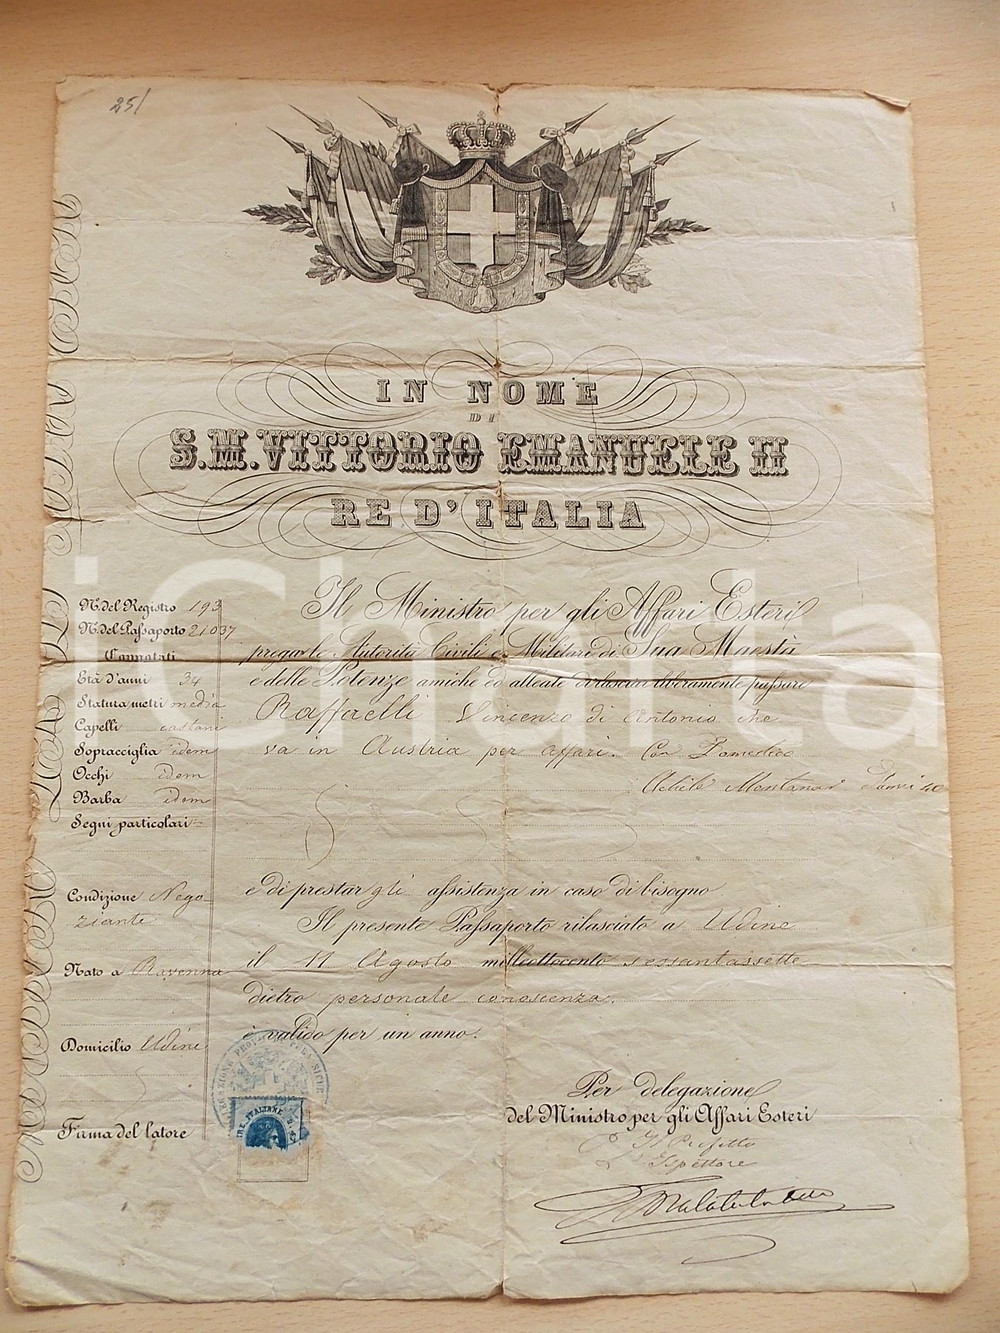 251
IN NOME
DI
S.M. VITTORIO EMANUELE II
RE D'ITALIA
N. del Registro 193
N. del Passaporto 21037
Connotati
Età d'anni 34
Statura metri media
Capelli castani
Sopracciglia idem
Occhi idem
Barba idem
Segni particolari
Condizione Nego
ziante
Nato a Ravenna
Domicilio Udine
Firma del latore
Il Ministro per gli Affari Esteri
prega le Autorità Civili e Militari di Sua Maestà
e delle Potenze amiche ed alleate di lasciar liberamente passare
Raffaelli Vincenzo di Antonio che
va in Austria per affari. Con Domestico
Achile Montanari d'anni 40
e di prestargli assistenza in caso di bisogno
Il presente Passaporto rilasciato a Udine
il 11 Agosto milleottocento sessantasette
dietro personale conoscenza.
è valido per un anno.
Per delegazione
del Ministro per gli Affari Esteri
Il Prefetto
L'Ispettore
iCharta